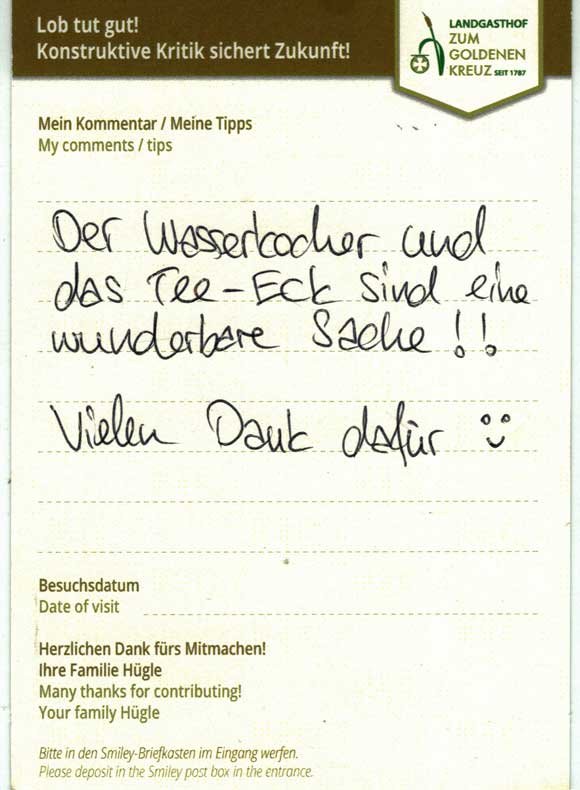 Lob tut gut!
Konstruktive Kritik sichert Zukunft!
LANDGASTHOF
ZUM
GOLDENEN
KREUZ SEIT 1787
Mein Kommentar / Meine Tipps
My comments / tips
Der Wasserkocher und
das Tee-Eck sind eine
wunderbare Sache!!
Vielen Dank dafür
Besuchsdatum
Date of visit
Herzlichen Dank fürs Mitmachen!
Ihre Familie Hügle
Many thanks for contributing!
Your family Hügle
Bitte in den Smiley-Briefkasten im Eingang werfen.
Please deposit in the Smiley post box in the entrance.